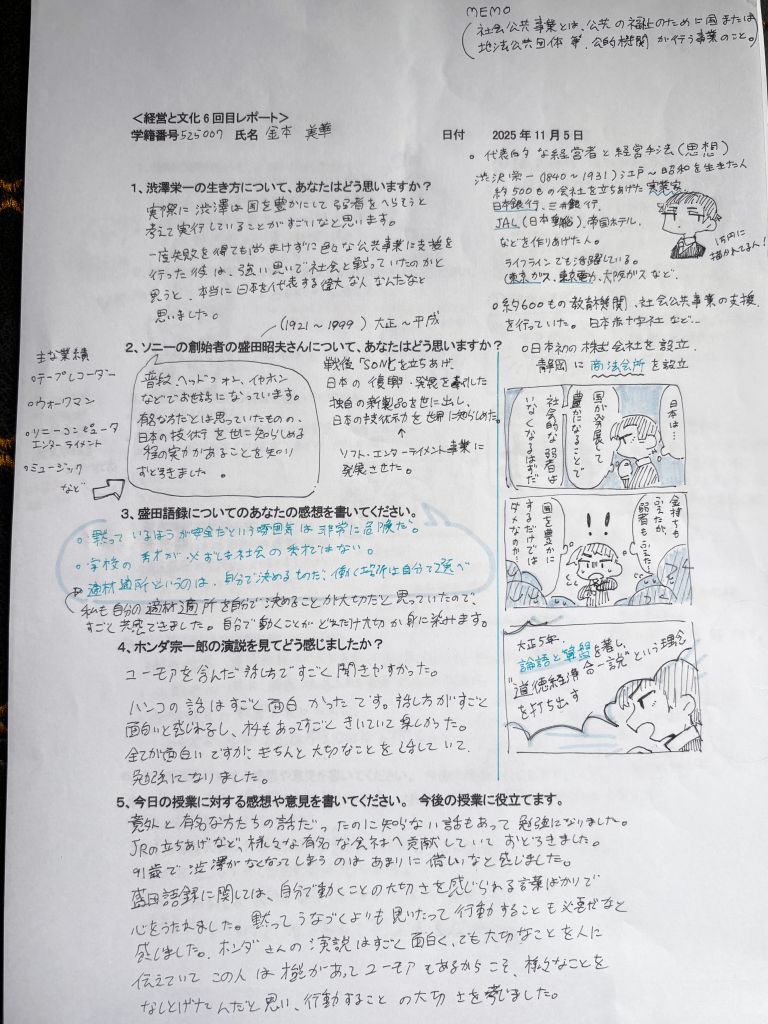 MEMO
(社会公共事業とは、公共の福祉のために国または
地法公共団体等、公的機関が行う事業のこと。)
<経営と文化 6 回目レポート>
学籍番号 525007 氏名 金本 美華
日付 2025 年 11 月 5 日
1、渋澤栄一の生き方について、あなたはどう思いますか？
実際に渋澤は国を豊かにして弱者をへらそうと
考えて実行していることがすごいなと思います。
一度失敗を得てもめげずに色々な公共事業に支援を
行った彼は、強い思いで社会と戦っていたのかと
思うと、本当に日本を代表する偉大な人なんだなと
思いました。
○ 代表的な経営者と経営手法(思想)
渋沢栄一(1840～1931)江戸～昭和を生きた人
約500もの会社を立ちあげた実業家
日本銀行、三井銀行、
JAL(日本郵船)、帝国ホテル、
などを作りあげた人。
ライフラインでも活躍している。
(東京ガス、東京電力、大阪ガスなど、
1万円に
描かれてる人！
○約600もの教育機関、社会公共事業の支援
を行っていた。日本赤十字社など…
○日本初の株式会社を設立
静岡に商法会所を設立
日本は…
国が発展して
豊かになることで
社会的な弱者は
いなくなるはずだ
金持ちも
ふえたが、
弱者もふえた…
！！
国を豊かに
するだけでは
ダメなのか…
大正5年、
論語と算盤を著し、
"道徳経済合一説"という理念
を打ち出す
2、ソニーの創始者の盛田昭夫さんについて、あなたはどう思いますか？
(1921～1999) 大正～平成
主な業績
○テープレコーダー
○ウォークマン
○ソニーコンピュータ
エンターテイメント
○ミュージック
など
普段、ヘッドフォン、イヤホン
などでお世話になっています。
有名な方だとは思っていたものの、
日本の技術力を世に知らしめる
程の実力があることを知り
おどろきました。
戦後「SONY」を立ちあげ、
日本の復興・発展を牽引した
独自の新製品を世に出し、
日本の技術力を世界に知らしめた。
↑
ソフト・エンターテイメント事業に
発展させた。
3、盛田語録についてのあなたの感想を書いてください。
○黙っているほうが安全だという雰囲気は非常に危険だ。
○学校の秀才が必ずしも社会の秀才ではない。
適材適所というのは、自分で決めるものだ、働く場所は自分で選べ
私も自分の適材適所を自分で決めることが大切だと思っていたので、
すごく共感できました。自分で動くことがどれだけ大切か身に染みます。
4、ホンダ宗一郎の演説を見てどう感じましたか？
ユーモアを含んだ話し方ですごく聞きやすかった。
ハンコの話はすごく面白かったです。話し方がすごく
面白いと感じれるし、オチもあってすごくきいていて楽しかった。
全てが面白いですが、きちんと大切なことを話していて、
勉強になりました。
5、今日の授業に対する感想や意見を書いてください。 今後の授業に役立てます。
意外と有名な方たちの話だったのに知らない話もあって勉強になりました。
JRの立ちあげなど、様々な有名な会社へ貢献していておどろきました。
91歳で渋澤がなくなってしまうのはあまりに惜しいなと感じました。
盛田語録に関しては、自分で動くことの大切さを感じられる言葉ばかりで
心をうたれました。黙ってうなづくよりも思いたって行動することも必要だなと
感じました。ホンダさんの演説はすごく面白く、でも大切なことを人に
伝えていてこの人は才能があってユーモアもあるからこそ、様々なことを
なしとげたんだと思い、行動することの大切さを考じました。